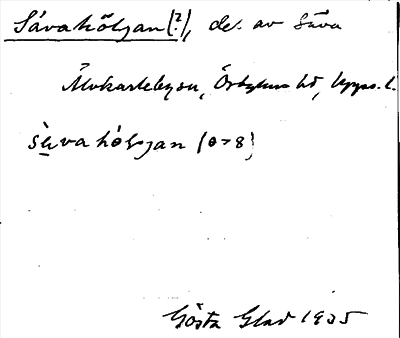 Såvahöljan (?), del. av Såva
Älvkarleby sn, Örbyhus hd, Upps. l.
såvahöljan (ɵ>8)
Gösta Glad 1935